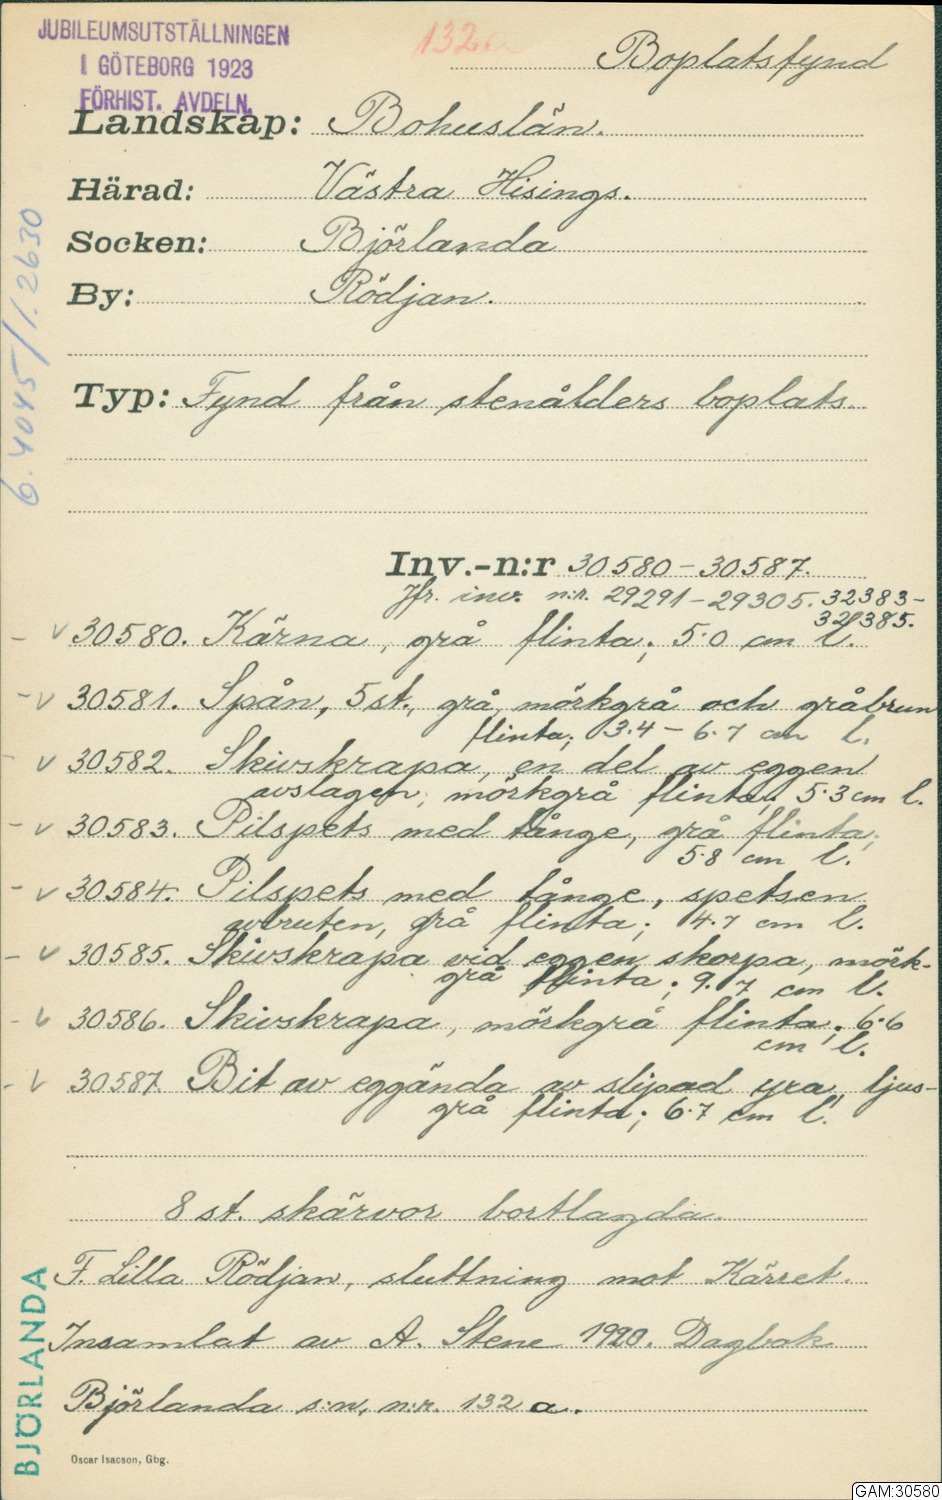 JUBILEUMSUTSTÄLLNINGEN
I GÖTEBORG 1923
FÖRHIST. AVDELN.
132a
Boplatsfynd
Landskap: Bohuslän.
Härad: Västra Hisings.
Socken: Björlanda
By: Rödjan.
6.4045/1.2630
Typ: Fynd från stenålders boplats.
Inv.-n:r 30580-30587.
Jfr. inv. n:r. 29291-29305. 32383-
32385.
- v 30580. Kärna, grå flinta; 5.0 cm l.
- v 30581. Spån, 5 st., grå, mörkgrå och gråbrun
flinta; 3.4 - 6.7 cm l.
- v 30582. Skivskrapa, en del av eggen
avslagen, mörkgrå flinta; 5.3 cm l.
- v 30583. Pilspets med tånge, grå flinta;
5.8 cm l.
- v 30584. Pilspets med tånge, spetsen
avbruten, grå flinta; 4.7 cm l.
- v 30585. Skivskrapa vid eggen skorpa, mörk-
grå flinta; 9.7 cm l.
- v 30586. Skivskrapa, mörkgrå flinta; 6.6
cm l.
- v 30587. Bit av eggända av slipad yxa, ljus-
grå flinta; 6.7 cm l.
8 st. skärvor bortlagda.
F. Lilla Rödjan, sluttning mot Kärret.
Insamlat av A. Stene 1920. Dagbok
Björlanda s:n, n:r. 132 a.
BJÖRLANDA
Oscar Isacson, Gbg.
GAM:30580